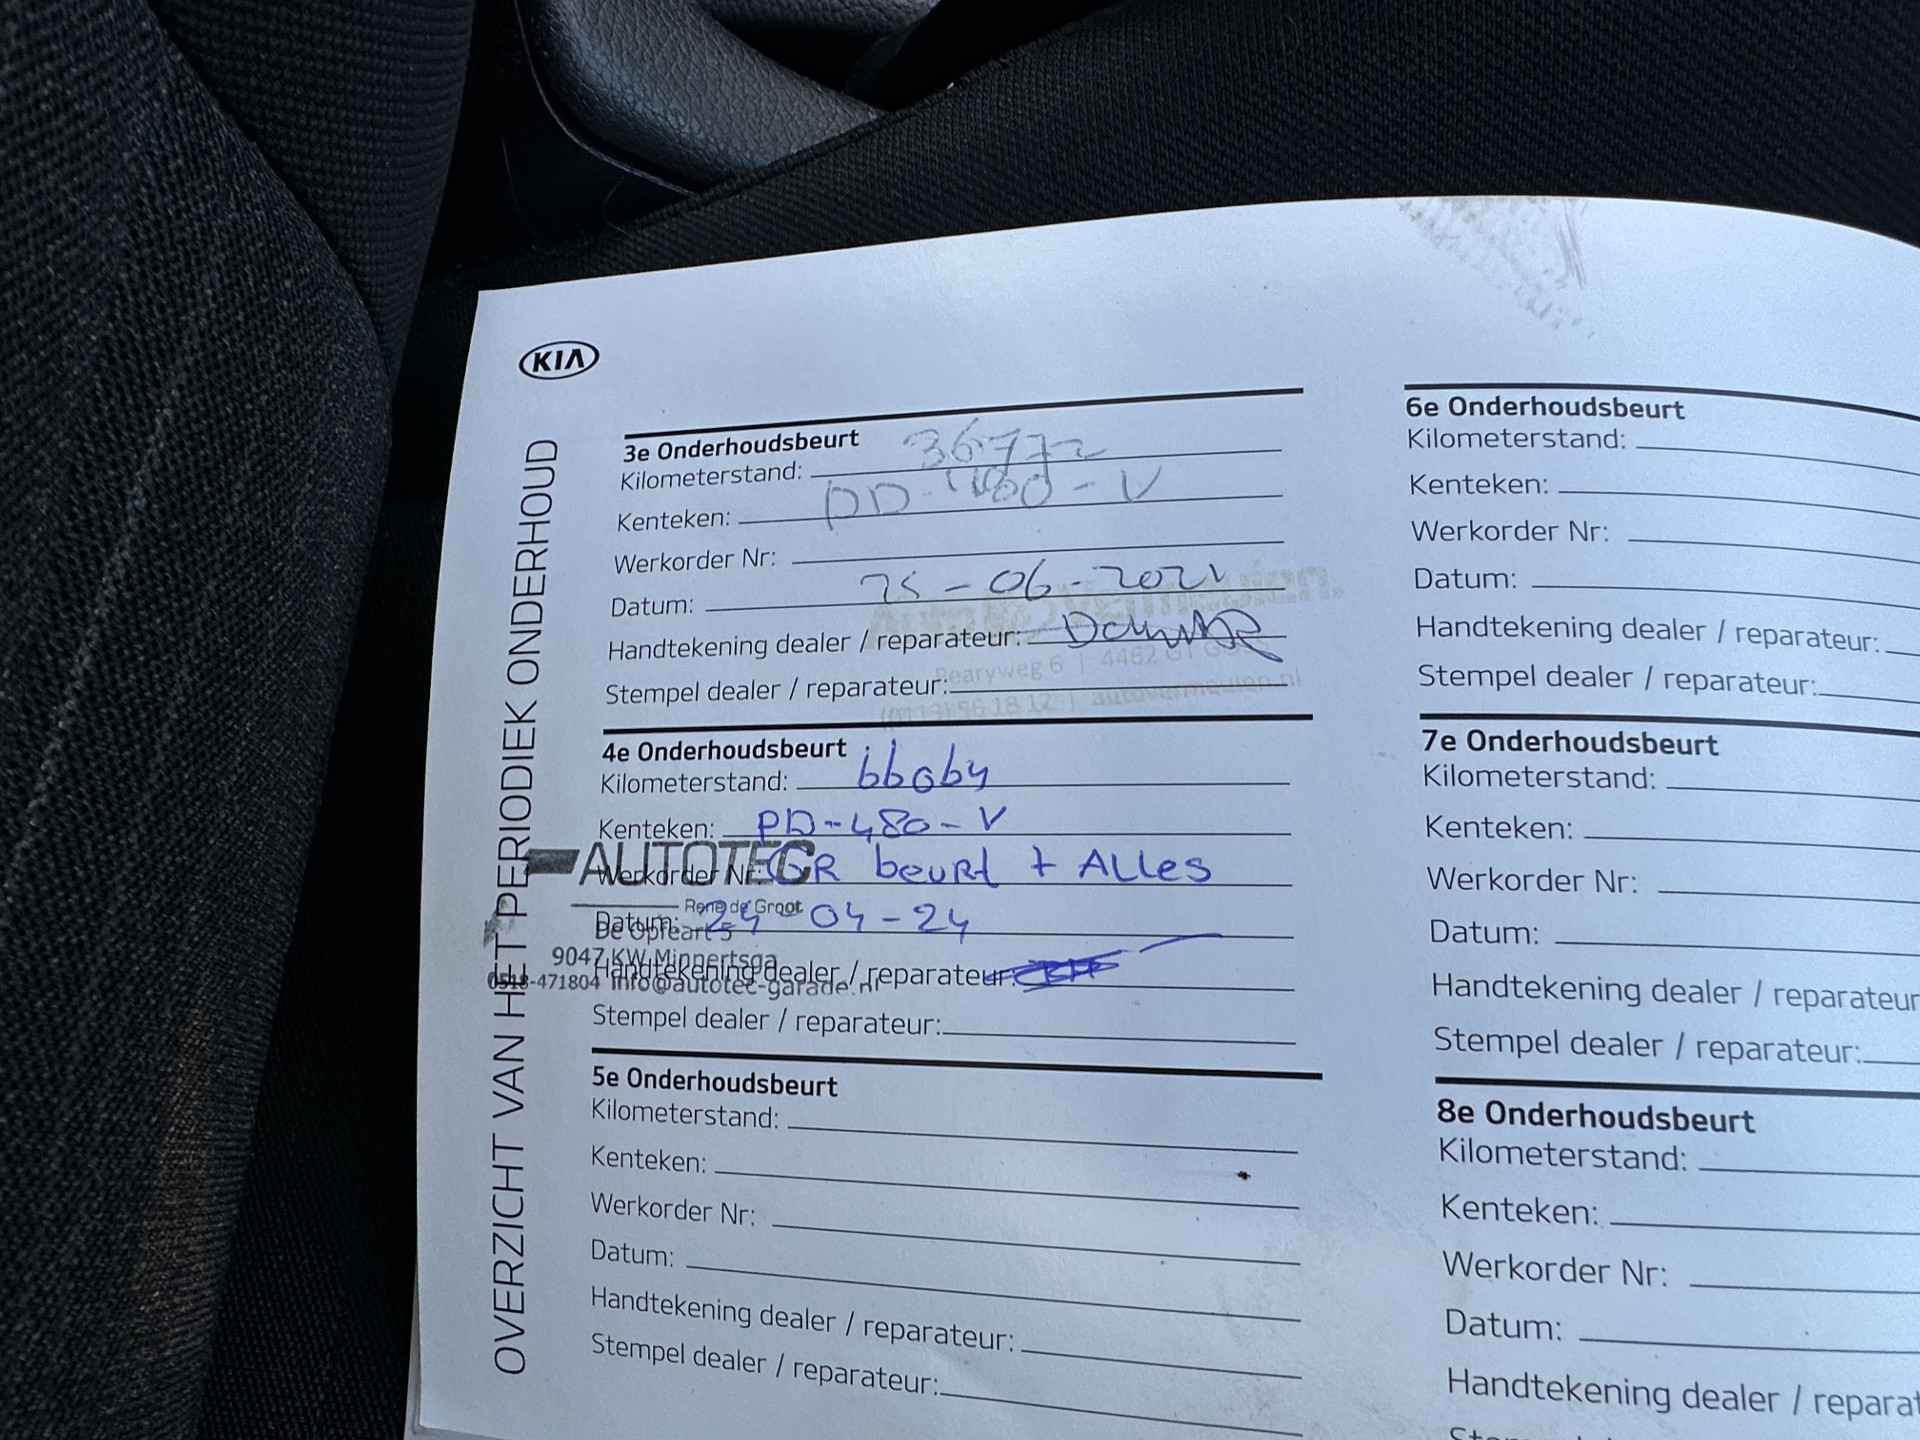 KIA
OVERZICHT VAN HET PERIODIEK ONDERHOUD
3e Onderhoudsbeurt
Kilometerstand: 36772
Kenteken: PD-480-V
Werkorder Nr:
Datum: 25-06-2021
Handtekening dealer / reparateur:
Stempel dealer / reparateur:
Pearyweg 6 | 4462 GT
(0113) 56 18 12 | autovermeulen.nl
4e Onderhoudsbeurt
Kilometerstand: 66064
Kenteken: PD-480-V
AUTOTEC
Werkorder Nr: GR beurt + Alles
René de Groot
Datum: 24-04-24
De Opfeart 5
9047 KW Minnertsga
Handtekening dealer / reparateur:
0518-471804 info@autotec-garade.nl
Stempel dealer / reparateur:
5e Onderhoudsbeurt
Kilometerstand:
Kenteken:
Werkorder Nr:
Datum:
Handtekening dealer / reparateur:
Stempel dealer / reparateur:
6e Onderhoudsbeurt
Kilometerstand:
Kenteken:
Werkorder Nr:
Datum:
Handtekening dealer / reparateur:
Stempel dealer / reparateur:
7e Onderhoudsbeurt
Kilometerstand:
Kenteken:
Werkorder Nr:
Datum:
Handtekening dealer / reparateur
Stempel dealer / reparateur:
8e Onderhoudsbeurt
Kilometerstand:
Kenteken:
Werkorder Nr:
Datum:
Handtekening dealer / reparat